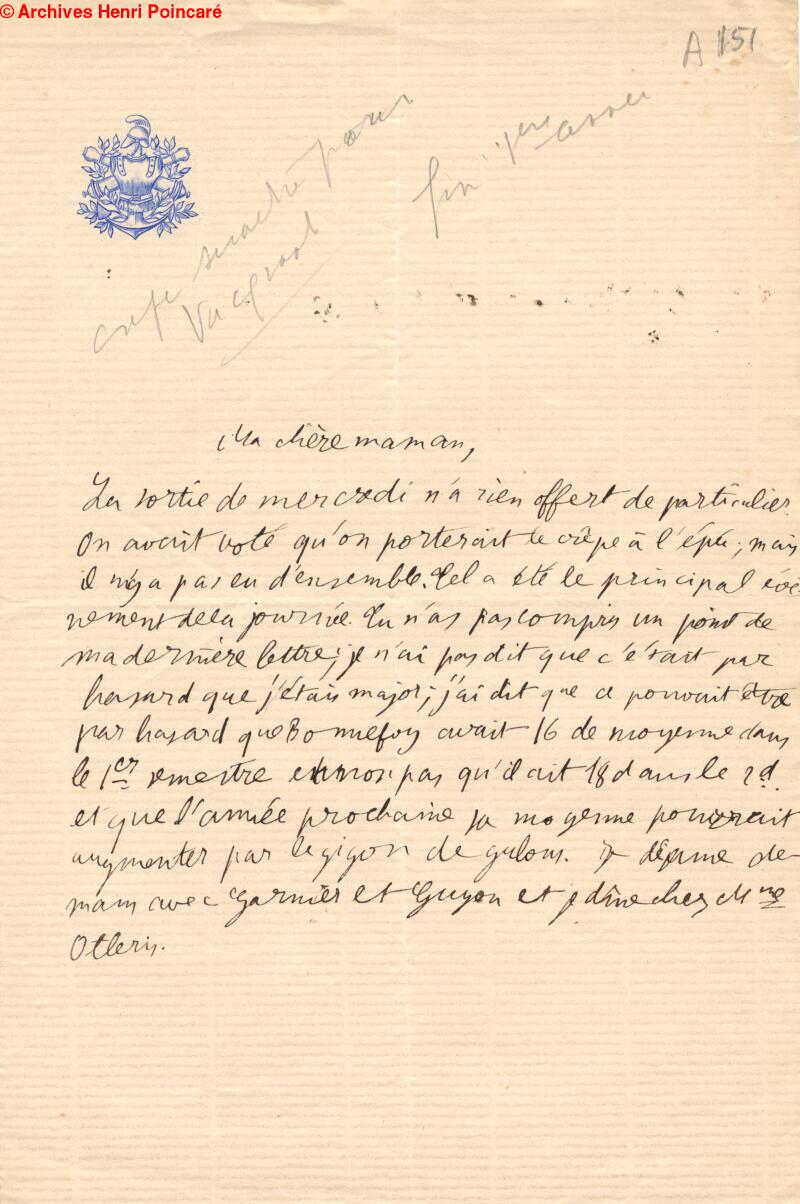 © Archives Henri Poincaré
A 151
pour
fin 1ere
Ma chère maman,
La sortie de mercredi n'a rien offert de particulier.
On avait voté qu'on porterait le crêpe à l'épée ; mais
il n'y a pas eu d'ensemble. Tel a été le principal évé-
nement de la journée. Tu n'as pas compris un point de
ma dernière lettre ; je n'ai pas dit que c'était par
hasard que j'étais major ; j'ai dit que ce pouvait être
par hasard que Bonnefoy avait 16 de moyenne dans
le 1er semestre et non pas qu'il ait 18 dans le 2d.
et que l'année prochaine sa moyenne pourrait
augmenter par le gigon de galons. Je déjeune de-
main avec Garnier et Guyon et je dîne chez Mme
Olleris.